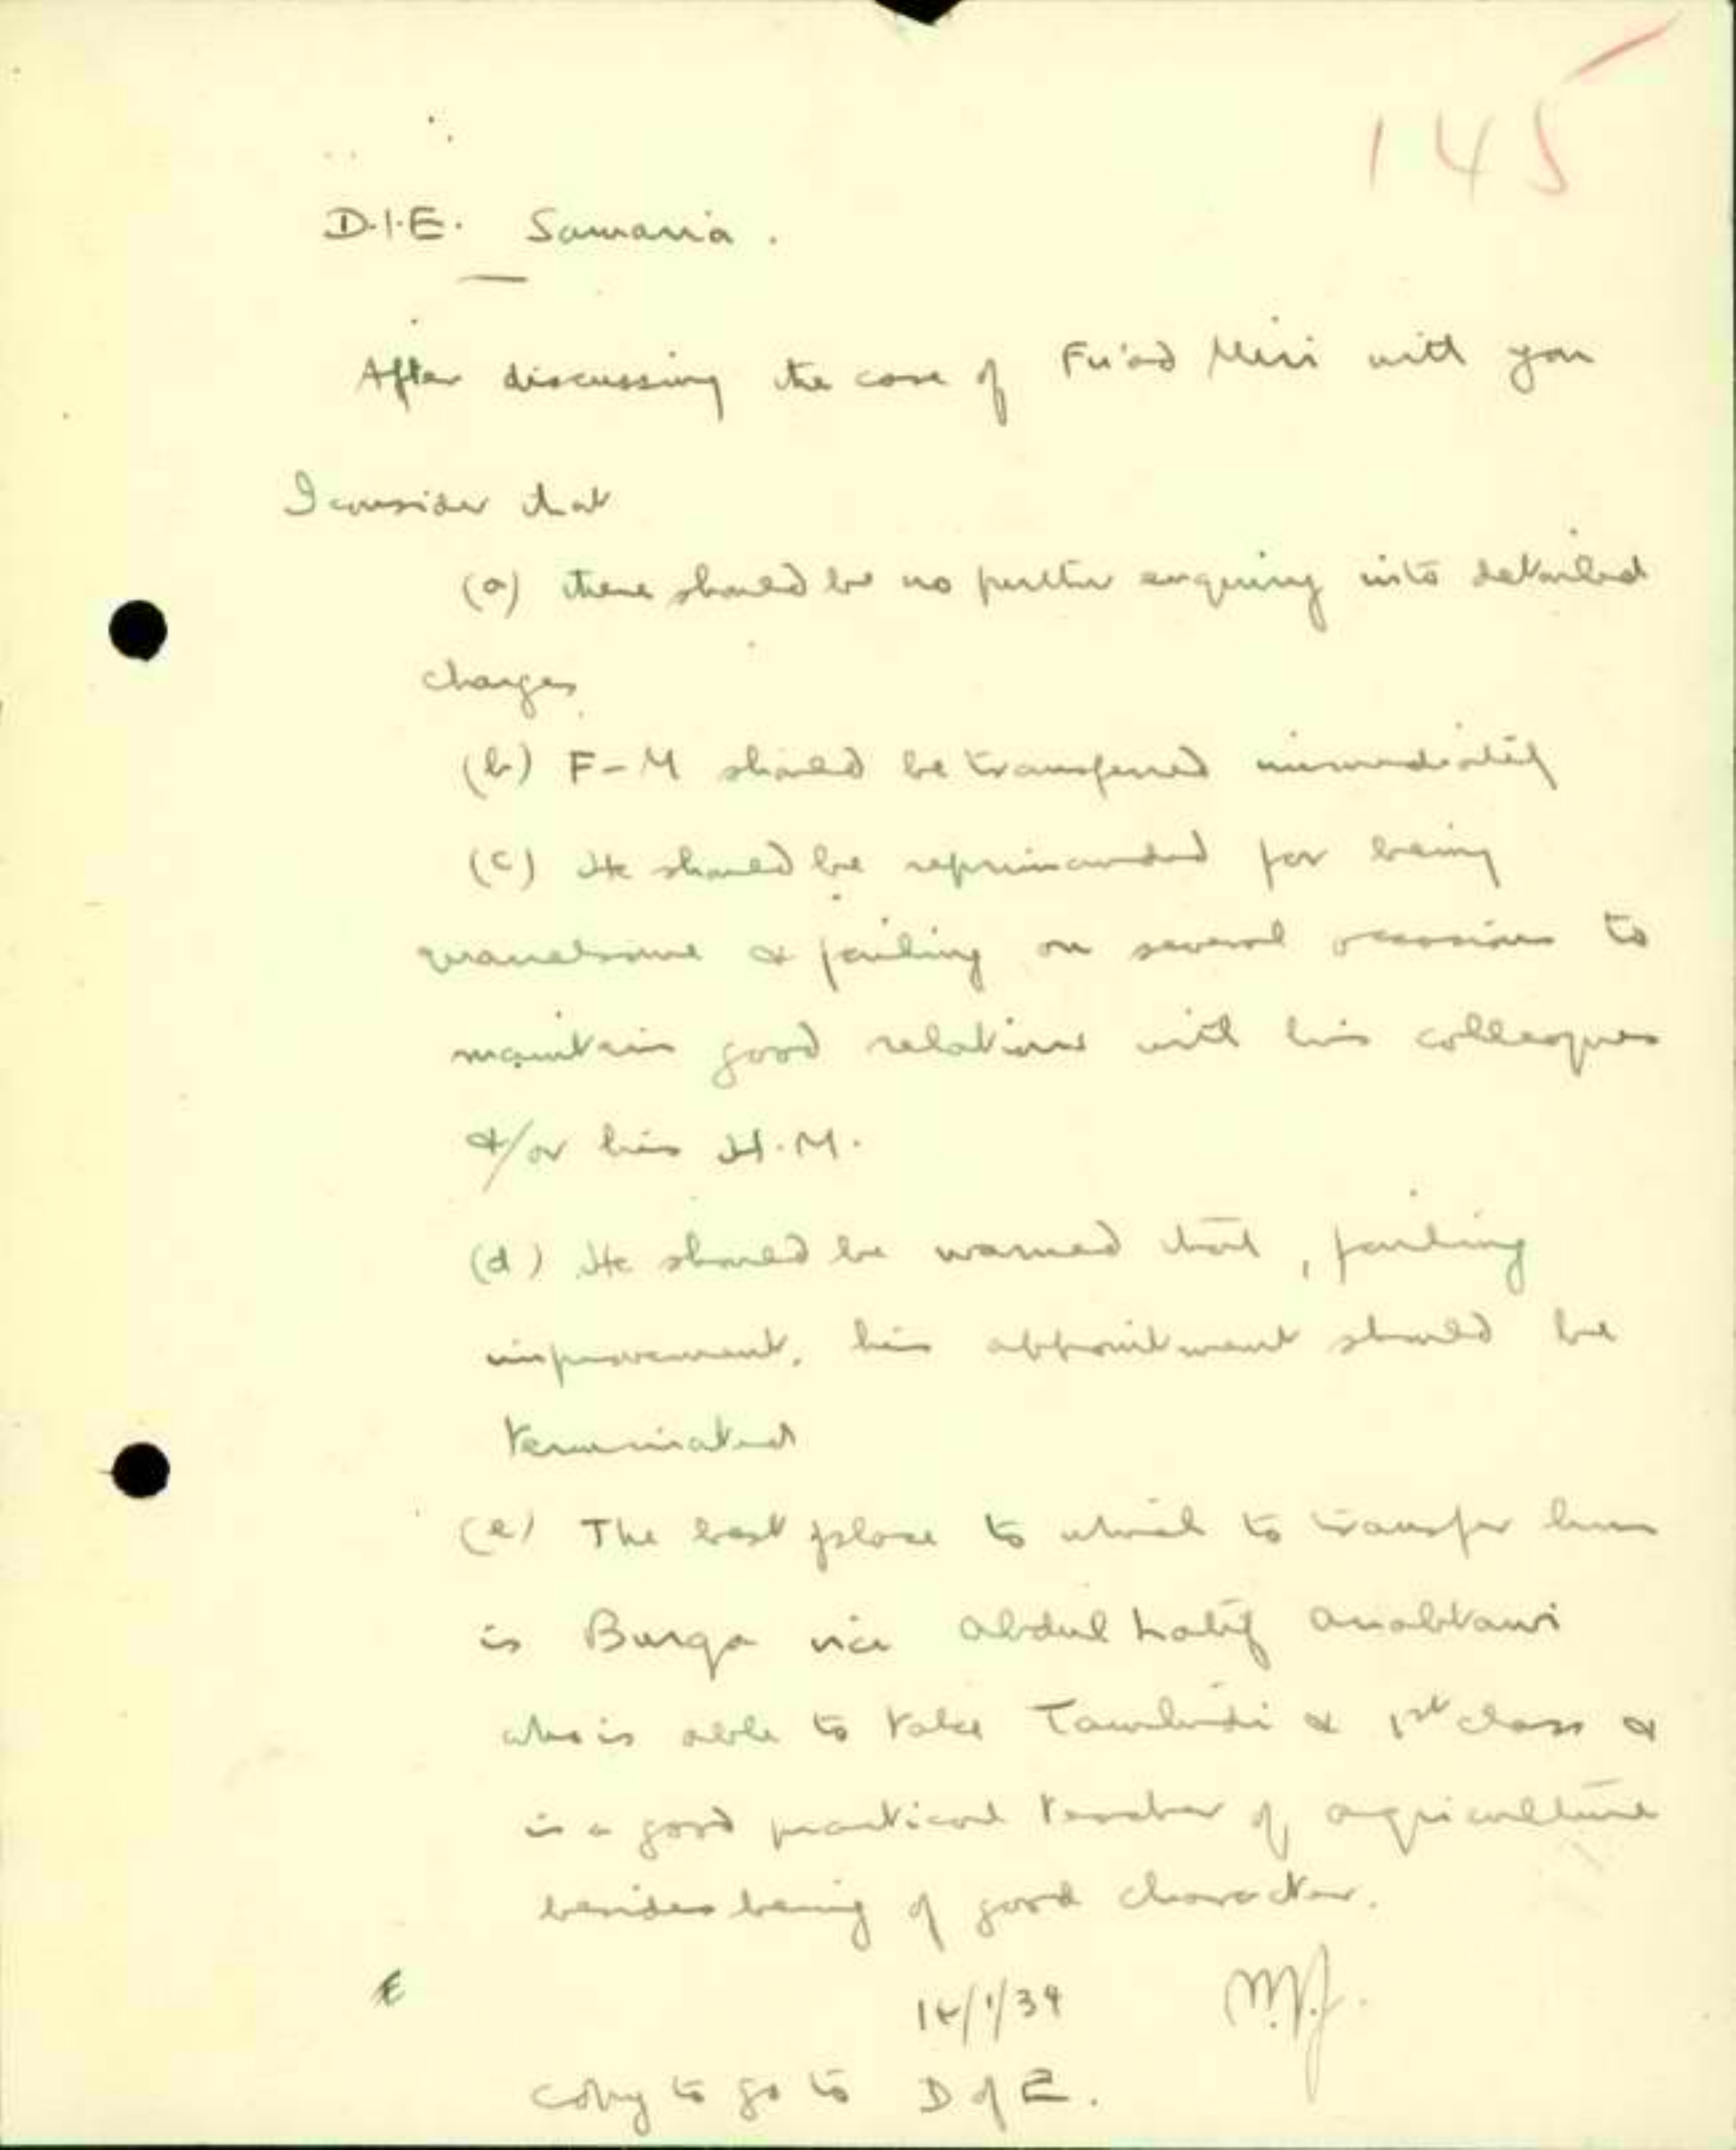 145
D.I.E. Samaria.
After discussing the case of Fu'ad Miri with you
I consider that
(a) there should be no further enquiry into detailed
charges
(b) F-M should be transferred immediately
(c) He should be reprimanded for being
quarrelsome & failing on several occasions to
maintain good relations with his colleagues
&/or his H.M.
(d) He should be warned that, failing
improvement, his appointment should be
terminated
(e) The best place to which to transfer him
is Burqa vice Abdul Latif Anabtawi
who is able to take Tamhidi & 1st class &
is a good practical teacher of agriculture
besides being of good character.
/1/39
copy to go to D of E.